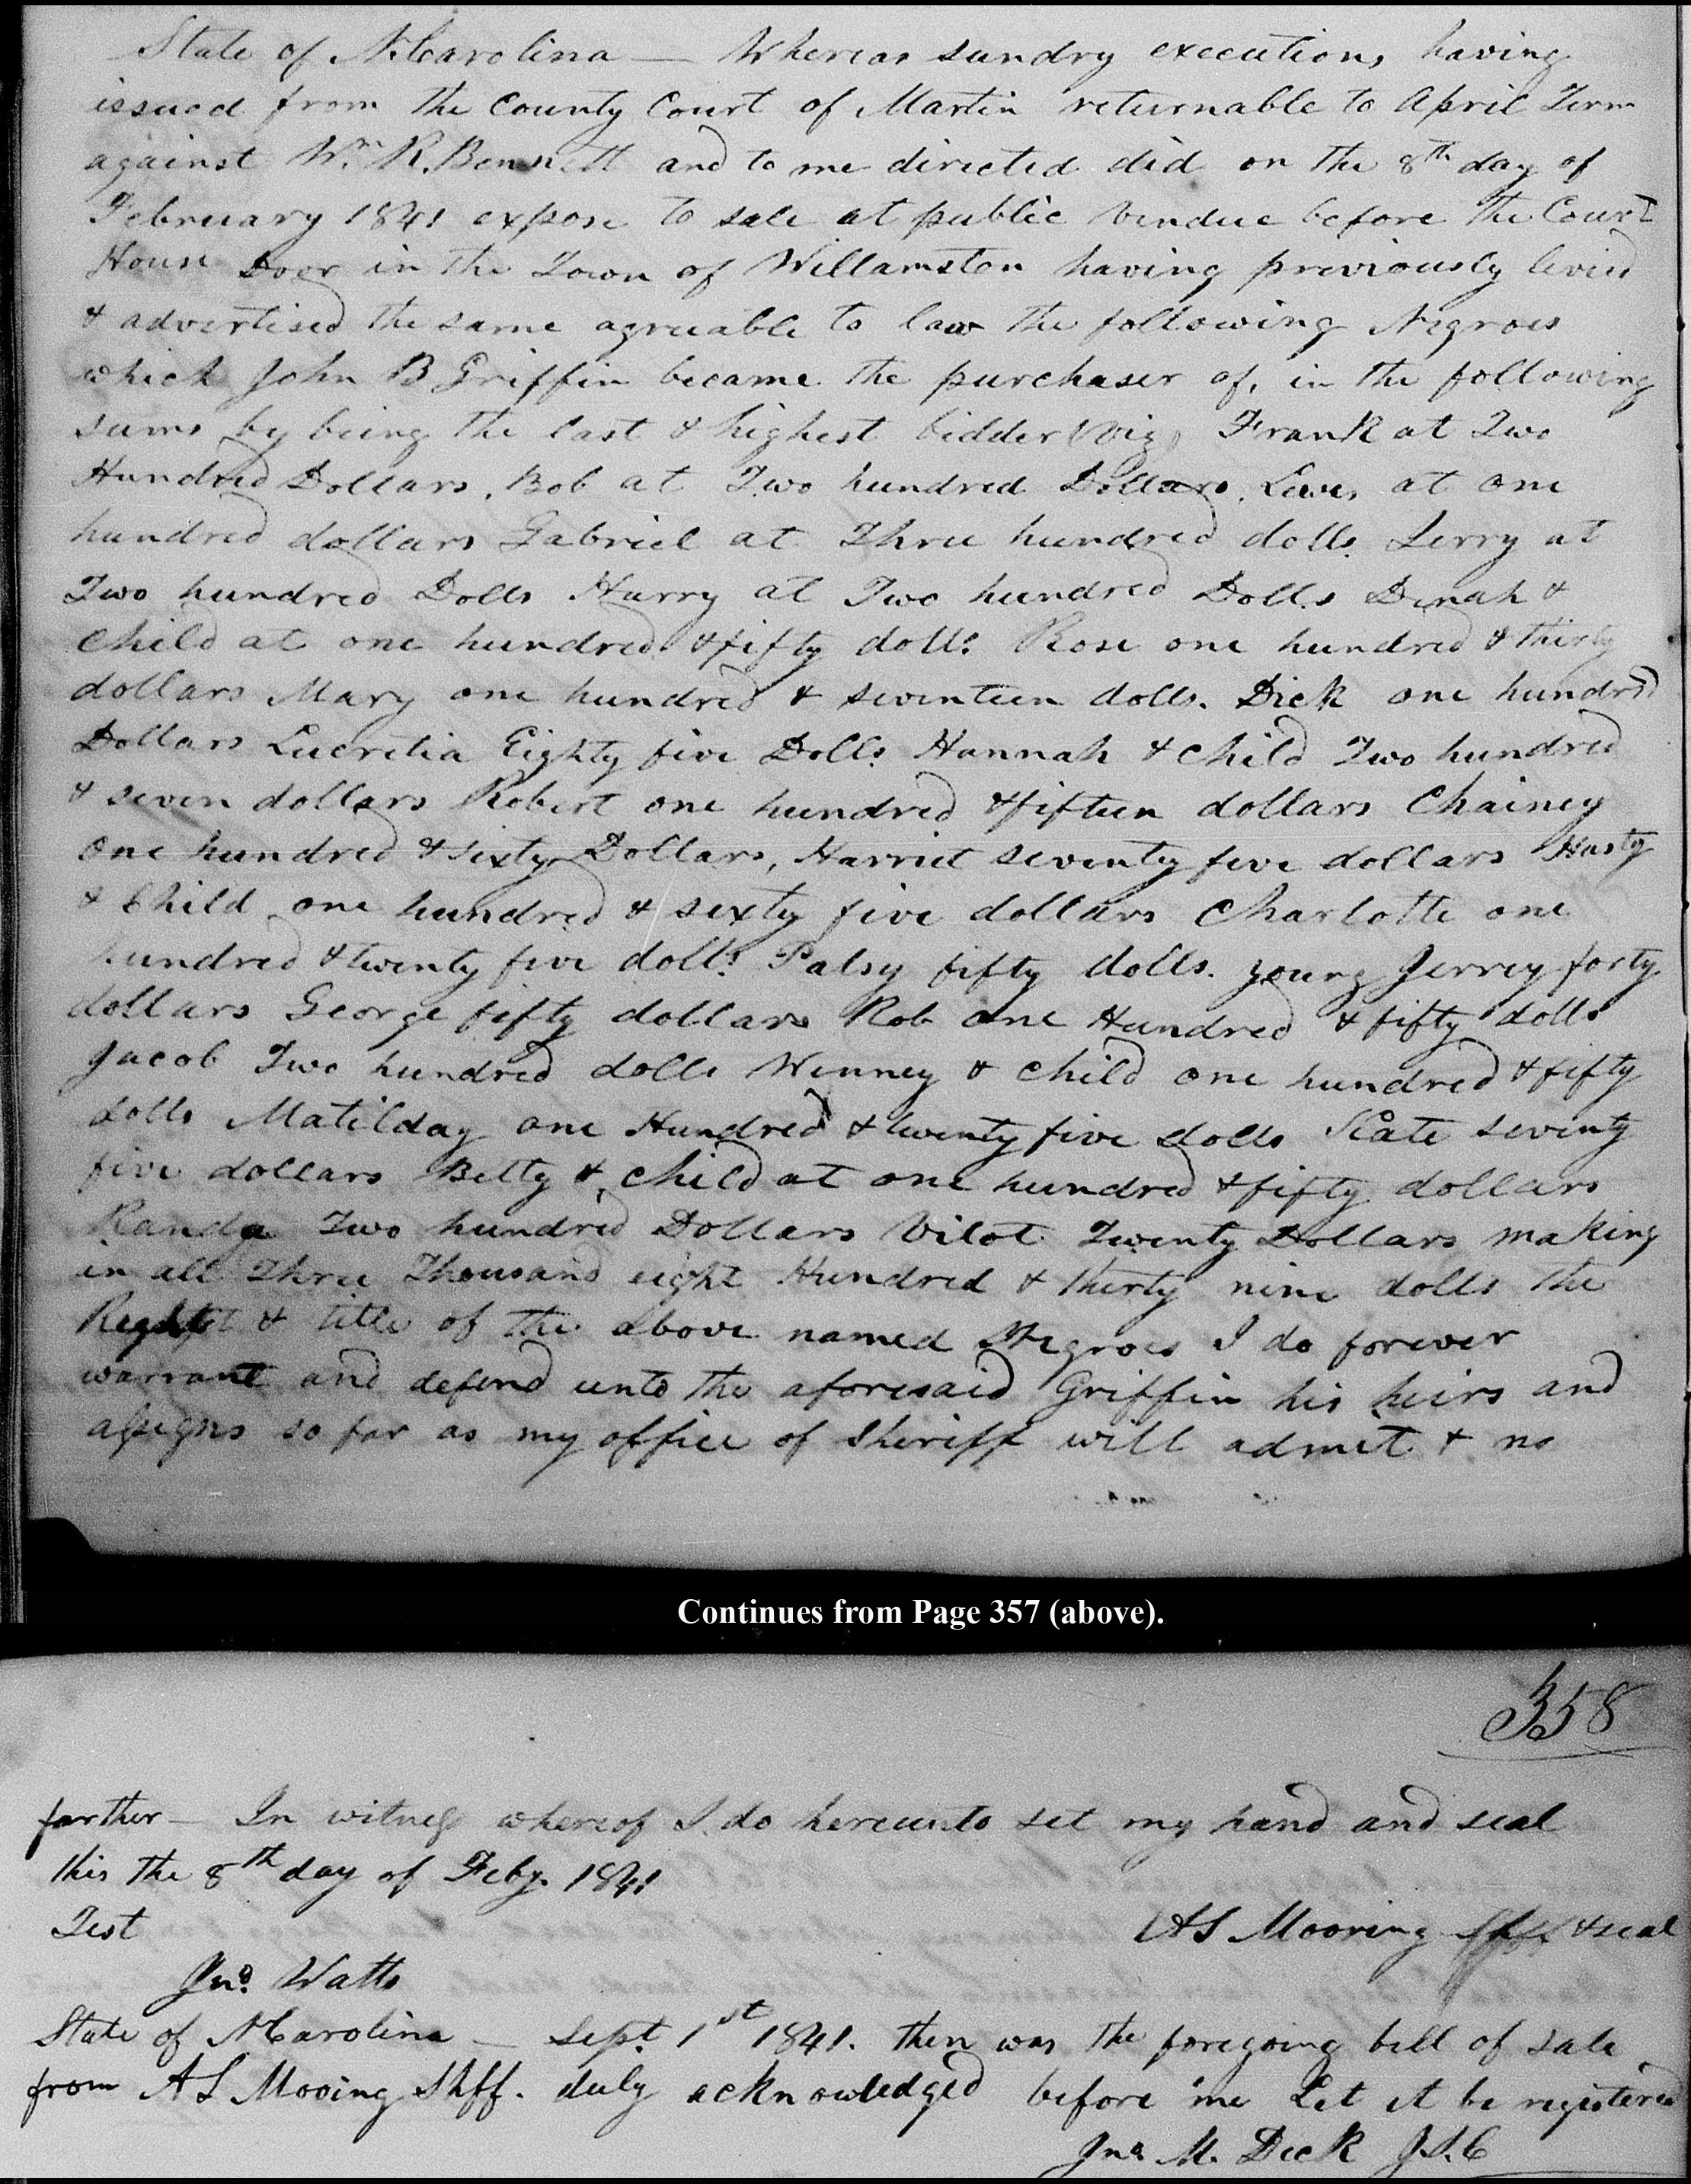 State of N. Carolina — Whereas sundry executions having
issued from the County Court of Martin returnable to April Term
against Wm. R. Bennett and to me directed did on the 8th day of
February 1841 expose to sale at public vendue before the Court
House Door in the Town of Willamston having previously levied
& advertised the same agreeable to law the following Negroes
which John B Griffin became the purchaser of, in the following
sums by being the last & highest bidder (Viz) Frank at Two
Hundred Dollars, Bob at Two hundred Dollars, Lewis at one
hundred dollars Gabriel at Three hundred dolls. Jerry at
Two hundred Dolls Harry at Two hundred Dolls Dinah &
child at one hundred & fifty dolls. Rose one hundred & thirty
dollars Mary one hundred & seventeen dolls. Dick one hundred
Dollars Lucretia Eighty five Dolls Hannah & child Two hundred
& seven dollars Robert one hundred & fifteen dollars Chainey
one hundred & sixty Dollars, Harriet seventy five dollars Hasty
& Child one hundred & sixty five dollars Charlotte one
hundred & twenty five dolls. Patsy fifty dolls. young Jerrey forty
dollars George fifty dollars Rob one Hundred & fifty dolls
Jacob Two hundred dolls Winney & child one hundred & fifty
dolls Matilday one Hundred & twenty five dolls Kate seventy
five dollars Betty & child at one hundred & fifty dollars
Randa Two hundred Dollars Vilot Twenty Dollars making
in all Three Thousand eight Hundred & thirty nine dolls the
Right & title of the above named Negroes I do forever
warrant and defend unto the aforesaid Griffin his heirs and
assigns so far as my office of Sheriff will admit & no
Continues from Page 357 (above).
358
farther — In witness whereof I do hereunto set my hand and seal
this the 8th day of Feby. 1841
Test
AS Mooring Shff. & seal
Jno. Watts
State of N Carolina — Sept. 1st 1841. then was the foregoing bill of sale
from A S Mooing Shff. duly acknowledged before me Let it be registered
Jno. M. Dick J.S.C